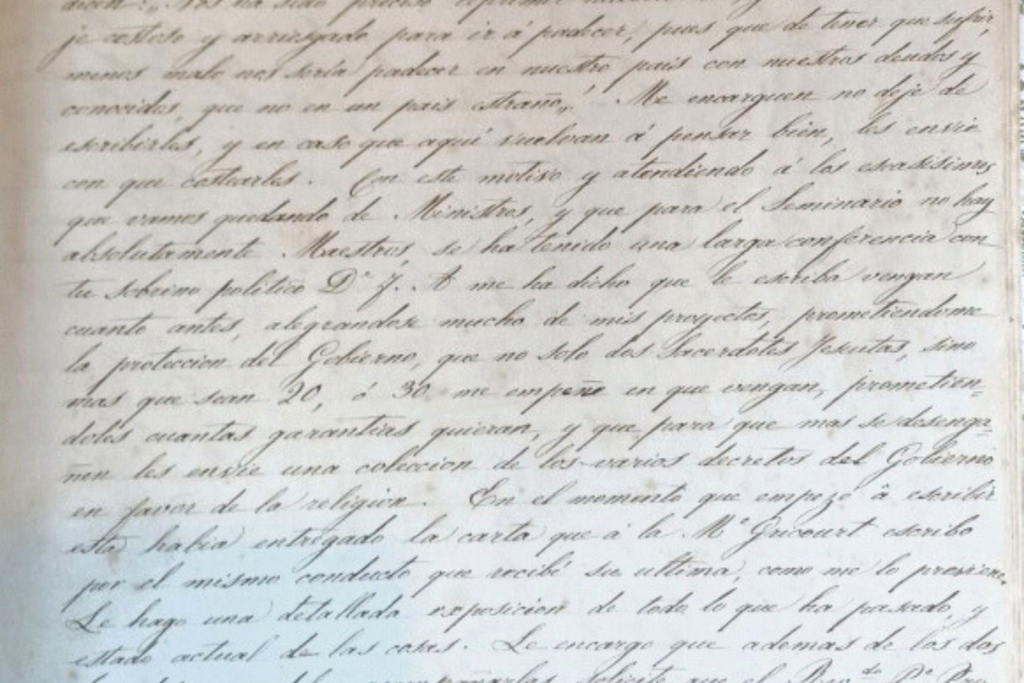 je costoso y arriesgado para ir á padecer, pues que de tener que sufrir,
menos malo nos sería padecer en nuestro pais con nuestros deudos y
conocidos, que no en un pais estraño,,! Me encarguen no deje de
escribirles, y en caso que aquí vuelvan á pensar bien, les envie
con que costearles. Con este motivo y atendiendo á los escasísimos
que vamos quedando de Ministros, y que para el Seminario no hay
absolutamente Maestros, se ha tenido una larga conferencia con
tu sobrino politico Dn J. A me ha dicho que le escriba vengan
cuanto antes, alegrandose mucho de mis proyectos, prometiendome
la proteccion del Gobierno, que no solo dos Sacerdotes Jesuitas, sino
mas que sean 20, ó 30 me empeñe en que vengan, prometien-
doles cuantas garantias quieran, y que para que mas se desenga-
ñen les envie una coleccion de los varios decretos del Gobierno
en favor de la religion. En el momento que empezé â escribir
esta habia entregado la carta que á la Me Gricourt escribo
por el mismo conducto que recibí su ultima, como me lo previene.
Le hago una detallada exposicion de todo lo que ha pasado, y
estado actual de las cosas. Le encargo que ademas de los dos
solicite que el